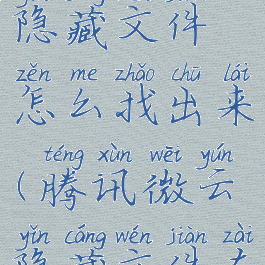 隐藏文件
zěn me zhǎo chū lái
怎么找出来
téng xùn wēi yún
(腾讯微云
yǐn cáng wén jiàn zài
隐藏文件在